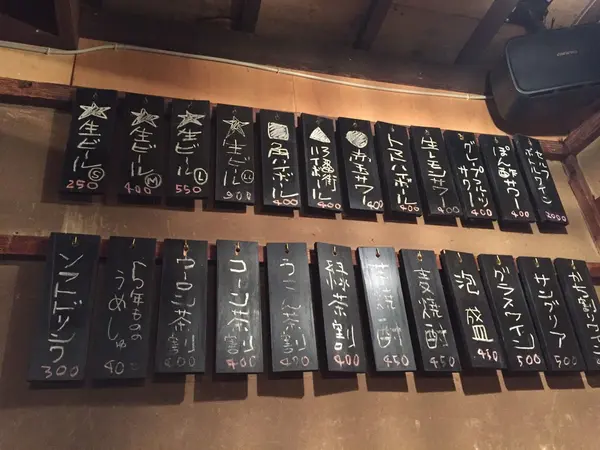 生ビール Ⓢ 250
生ビール Ⓜ 400
生ビール Ⓛ 550
生ビール 900
角ハイボール 400
ハイボール 400
サワー 400
トリスハイボール 400
生レモンサワー 400
グレープフルーツサワー 400
ぽん酢サワー 400
セルフワイン ボトル 2000
ソフトドリンク 300
5年ものの うめしゅ 400
ウーロン茶割 400
コーン茶割り 400
うこん茶割 400
緑茶割り 400
芋焼酎 450
麦焼酎 450
泡盛 450
グラスワイン 500
サングリア 500
500